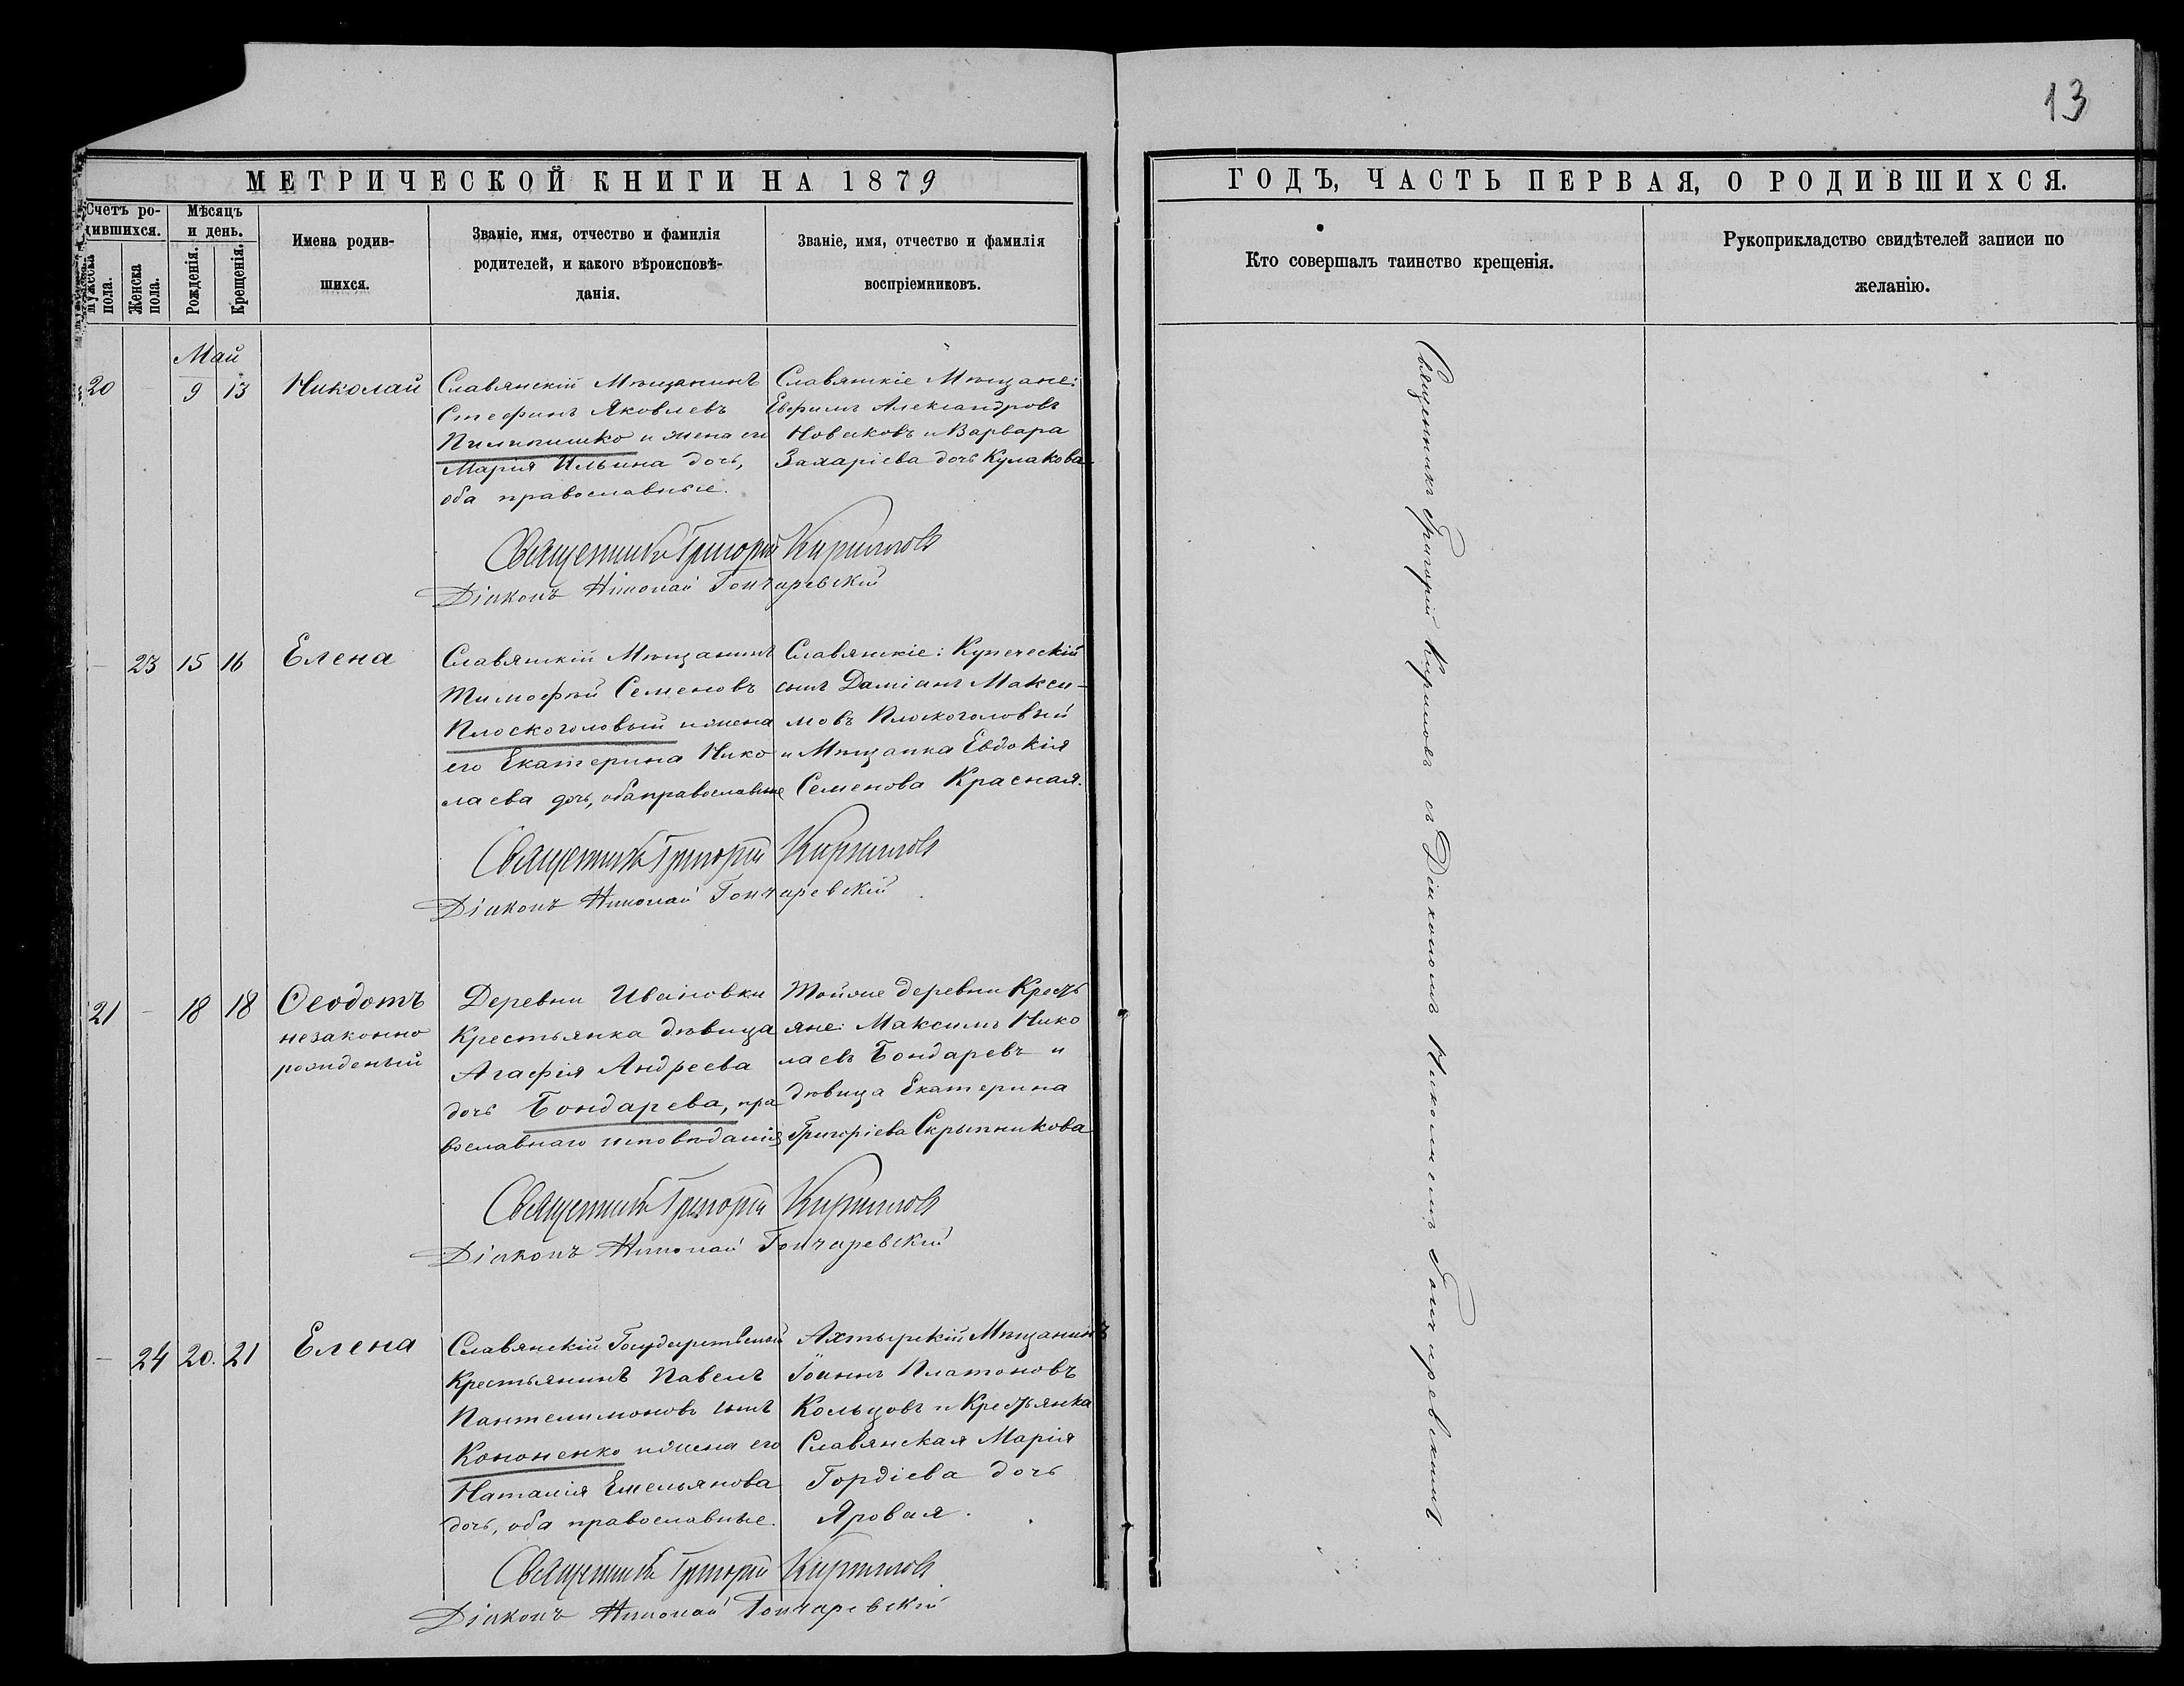 13
МЕТРИЧЕСКОЙ КНИГИ НА 1879
ГОДЪ, ЧАСТЬ ПЕРВАЯ, О РОДИВШИХСЯ.
Счетъ ро-
дившихся.
мужеска
пола.
Женска
пола.
Мѣсяцъ
и день.
Рожденія.
Крещенія.
Имена родив-
шихся.
Званіе, имя, отчество и фамилія
родителей, и какого вѣроисповѣ-
данія.
Званіе, имя, отчество и фамилія
воспріемниковъ.
Кто совершалъ таинство крещенія.
Рукоприкладство свидѣтелей записи по
желанію.
Май
20 — 9 13 Николай
Славянскій Мѣщанинъ
Стефанъ Яковлевъ
Пилипишко и жена его
Марія Ильина дочь,
оба православные.
Славянскіе Мѣщане:
Евфимъ Александровъ
Новаковъ и Варвара
Захаріева дочь Кулакова.
Священникъ Григорій Кириловъ
Діаконъ Николай Гончаревскій
— 23 15 16 Елена
Славянскій Мѣщанинъ
Тимофѣй Семеновъ
Плоскоголовый и жена
его Екатерина Нико
лаева дочь, оба православные
Славянскіе: Купеческій
сынъ Даміанъ Макси-
мовъ Плоскоголовый
и Мѣщанка Евдокія
Семенова Красная.
Священникъ Григорій Кириловъ
Діаконъ Николай Гончаревскій
21 — 18 18 Ѳеодотъ
незаконно
рожденый
Деревни Ивановки
Крестьянка дѣвица
Агафія Андреева
дочь Бондарева, пра
вославнаго исповѣданія
Тойже деревни Кресть
яне: Максимъ Нико
лаевъ Бондаревъ и
дѣвица Екатерина
Григоріева Скрыпникова
Священникъ Григорій Кириловъ
Діаконъ Николай Гончаревскій
— 24 20. 21 Елена
Славянскій Государственый
Крестьянинъ Павелъ
Пантелимоновъ сынъ
Кононенко и жена его
Наталія Емельянова
дочь, оба православные.
Ахтырскій Мѣщанинъ
Іоаннъ Платоновъ
Кольцовъ и Крестьянка
Славянская Марія
Гордіева дочь
Яровая.
Священникъ Григорій Кириловъ
Діаконъ Николай Гончаревскій
Священникъ Григорій Кириловъ съ Діакономъ Николаемъ Гончаревскимъ